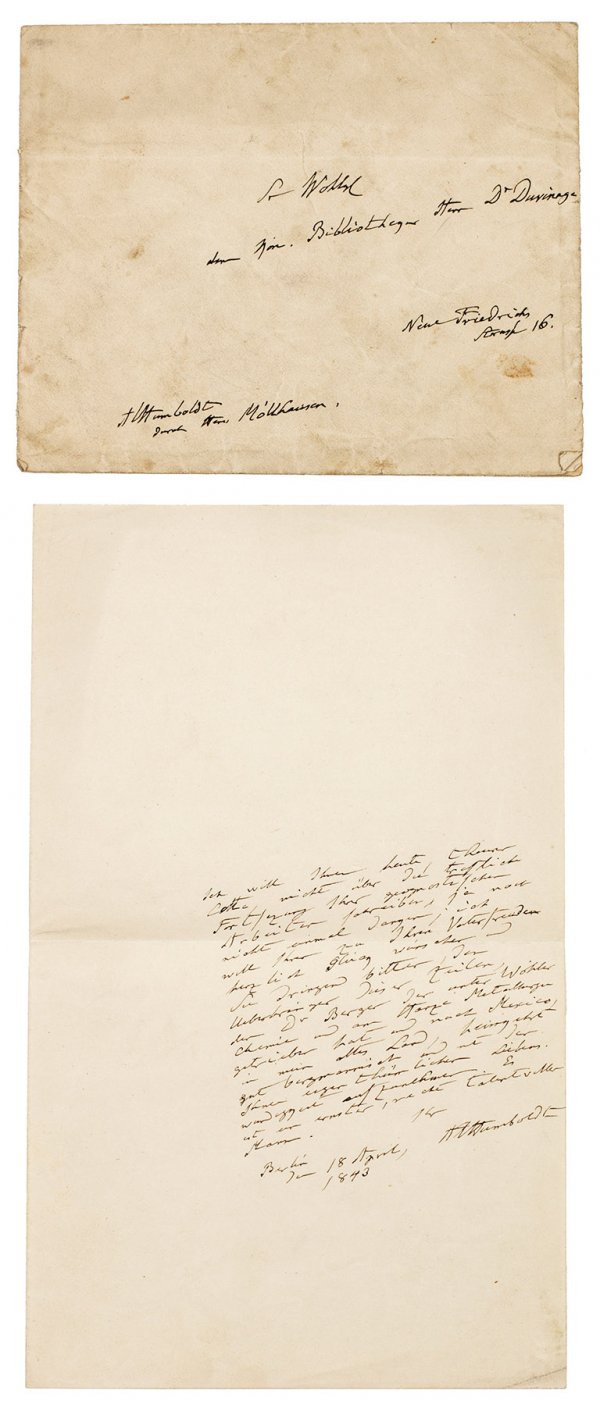 Sr Wohlg
dem Kön. Bibliothequar Herr Dr Duvinage
Neue Friedrichs
Strasse 16.
AlHumboldt
durch Herrn Möllhausen.
Ich will Ihnen heute, theurer
Cotta, nicht über die treflich
Fortsezung Ihrer geognostischen
Arbeiten schreiben, ja noch
nicht einmal danger: ich
will Ihnen zu Ihren Vaterfreuden
herzlich Glück wünschen und
Sie dringend bitten, den
Ueberbringer dieser Zeilen,
den Dr Berger der unter Wöhler
Chemie und am Harze Metallurgie
getrieben hat und nach Mexico,
in mein altes Land, heimgeht
gut bergmännisch und mit der
Ihnen eigenthümlichen Liebens
würdigkeit aufzunehmen. Es
ist ein ernster, recht talentvoller
Mann. Ihr
AlHumboldt
Berlin 18 April,
1843